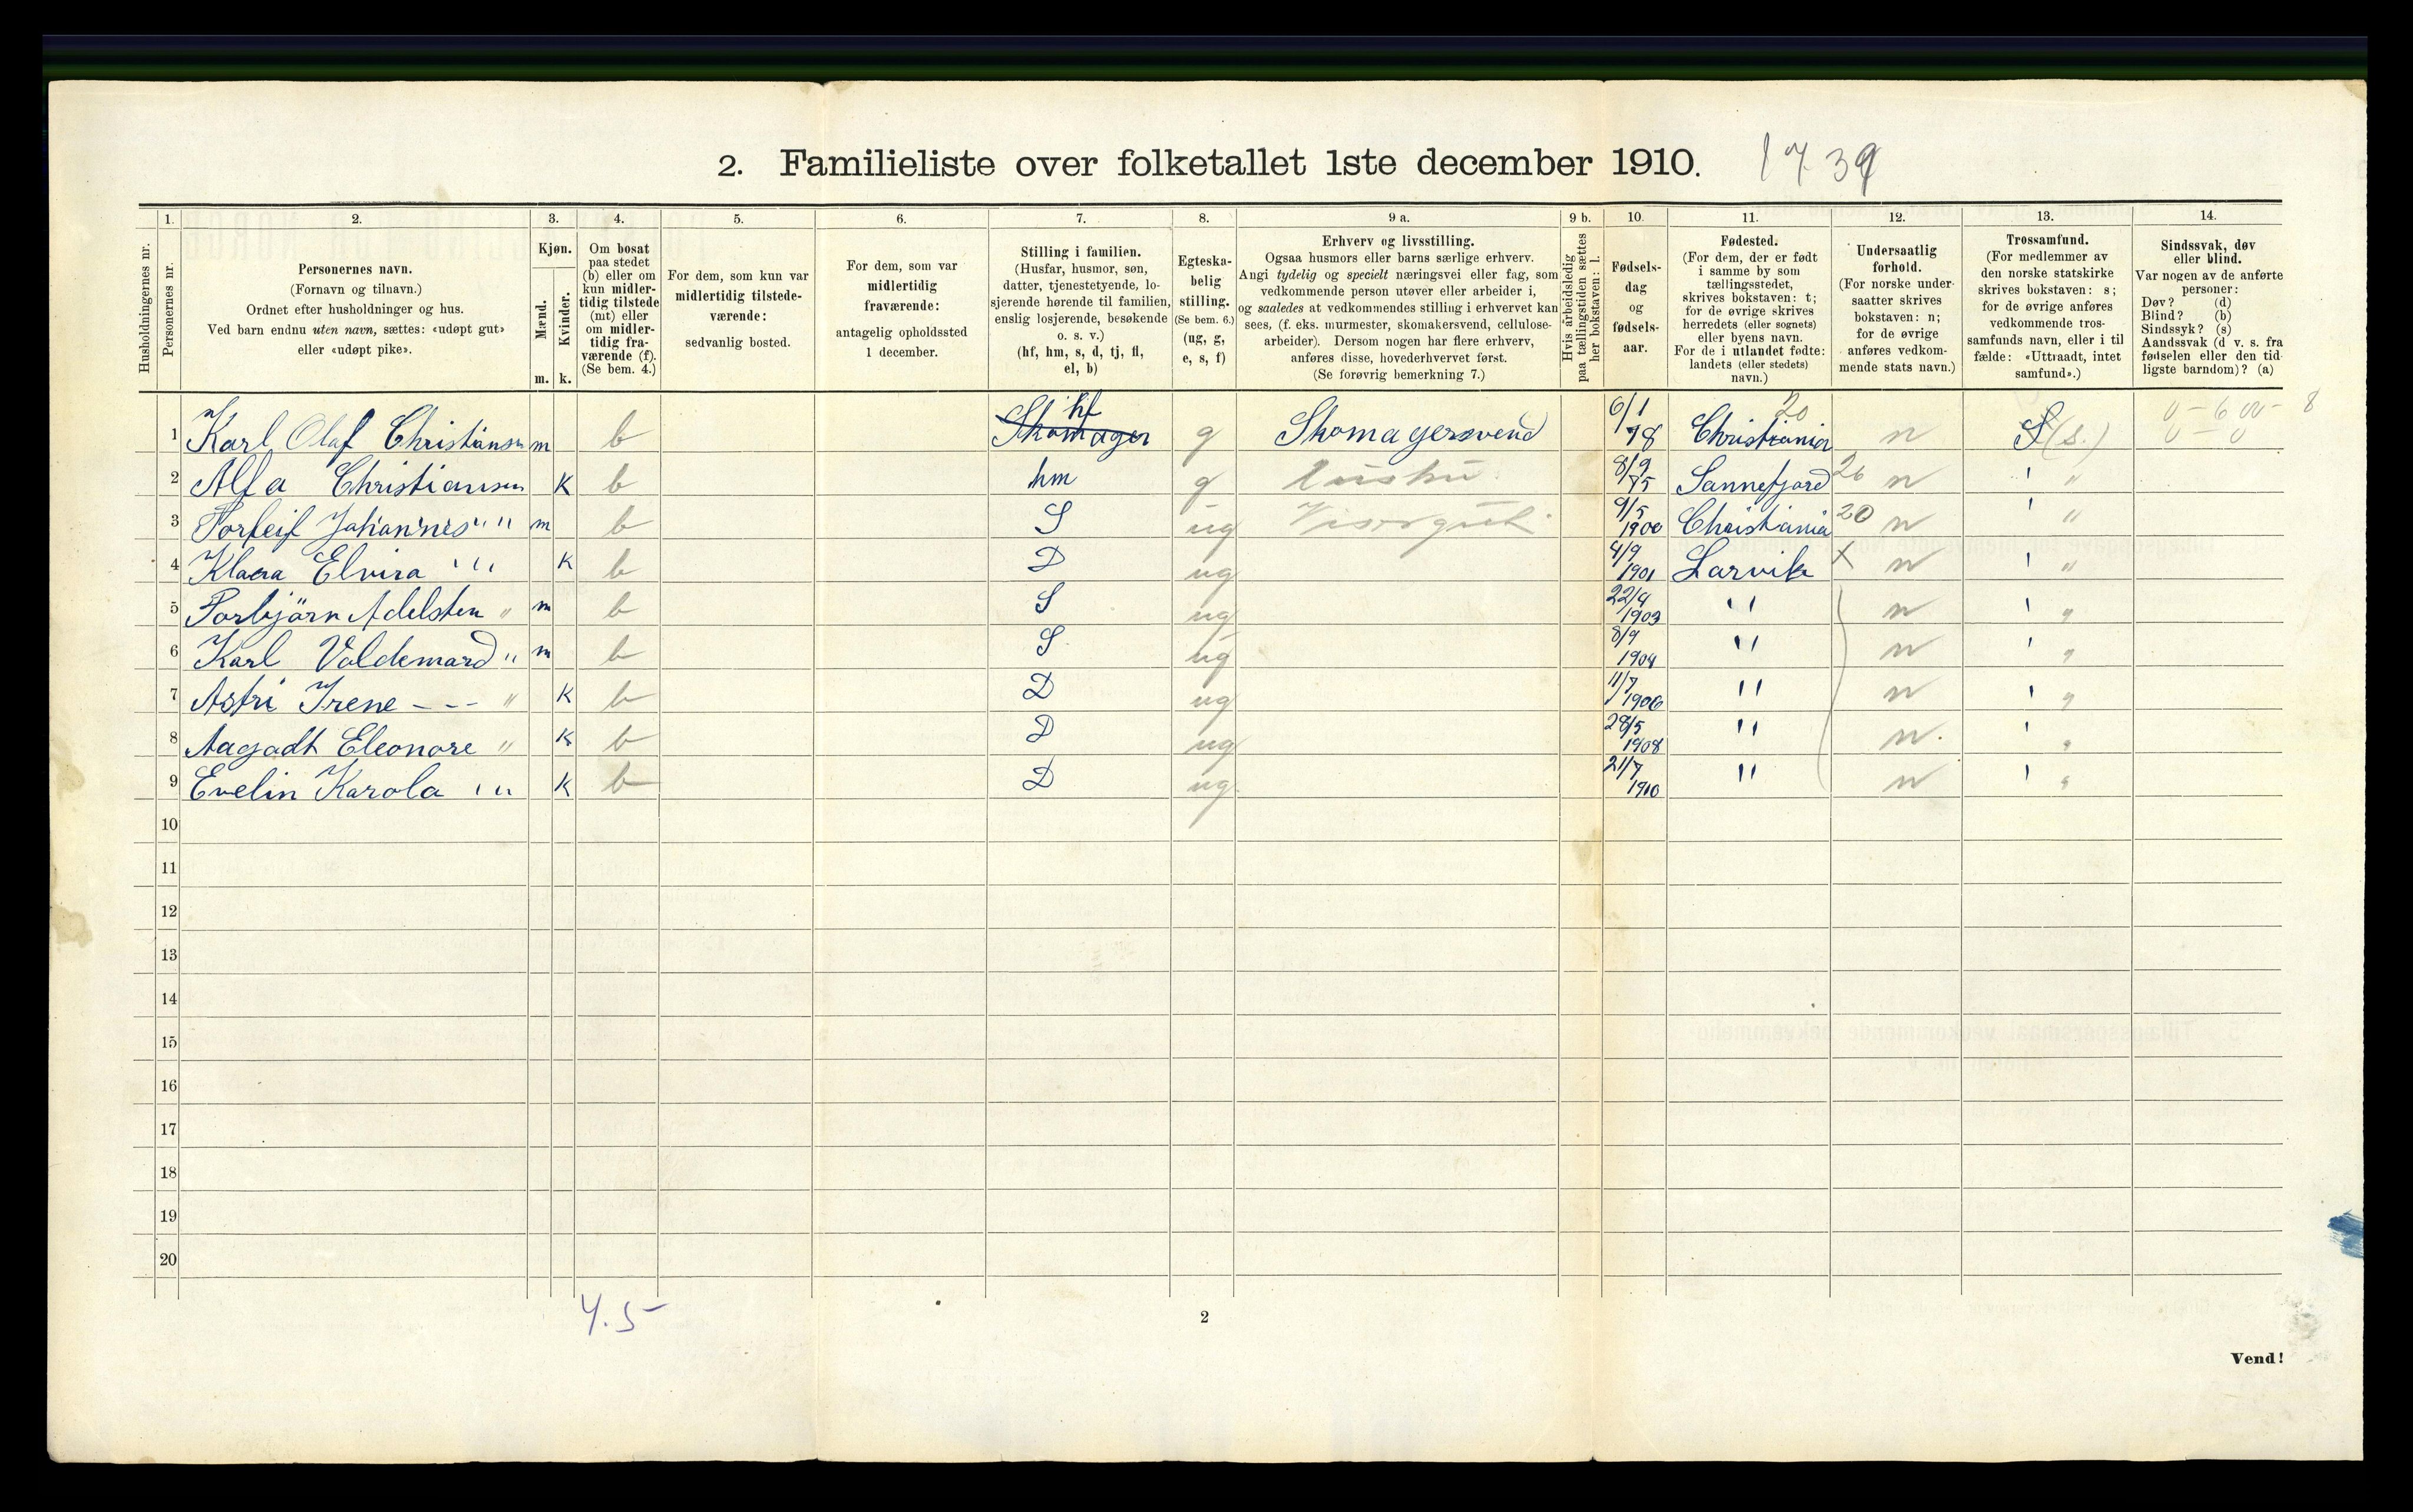 2. Familieliste over folketallet 1ste december 1910. 1739
1. 2. 3. 4. 5. 6. 7. 8. 9 a. 9 b. 10. 11. 12. 13. 14.
Husholdningernes nr.
Personernes nr.
Personernes navn.
(Fornavn og tilnavn.)
Ordnet efter husholdninger og hus.
Ved barn endnu uten navn, sættes: «udøpt gut»
eller «udøpt pike».
Kjøn.
Mænd.
Kvinder.
m. k.
Om bosat
paa stedet
(b) eller om
kun midler-
tidig tilstede
(mt) eller
om midler-
tidig fra-
værende (f).
(Se bem. 4.)
For dem, som kun var
midlertidig tilstede-
værende:
sedvanlig bosted.
For dem, som var
midlertidig
fraværende:
antagelig opholdssted
1 december.
Stilling i familien.
(Husfar, husmor, søn,
datter, tjenestetyende, lo-
sjerende hørende til familien,
enslig losjerende, besøkende
o. s. v.)
(hf, hm, s, d, tj, fl,
el, b)
Egteska-
belig
stilling.
(Se bem. 6.)
(ug, g,
e, s, f)
Erhverv og livsstilling.
Ogsaa husmors eller barns særlige erhverv.
Angi tydelig og specielt næringsvei eller fag, som
vedkommende person utøver eller arbeider i,
og saaledes at vedkommendes stilling i erhvervet kan
sees, (f. eks. murmester, skomakersvend, cellulose-
arbeider). Dersom nogen har flere erhverv,
anføres disse, hovederhvervet først.
(Se forøvrig bemerkning 7.)
Hvis arbeidsledig
paa tællingstiden sættes
her bokstaven: l.
Fødsels-
dag
og
fødsels-
aar.
Fødested.
(For dem, der er født
i samme by som
tællingsstedet,
skrives bokstaven: t;
for de øvrige skrives
herredets (eller sognets)
eller byens navn.
For de i utlandet fødte:
landets (eller stedets)
navn.)
Undersaatlig
forhold.
(For norske under-
saatter skrives
bokstaven: n;
for de øvrige
anføres vedkom-
mende stats navn.)
Trossamfund.
(For medlemmer av
den norske statskirke
skrives bokstaven: s;
for de øvrige anføres
vedkommende tros-
samfunds navn, eller i til
fælde: «Uttraadt, intet
samfund».)
Sindssvak, døv
eller blind.
Var nogen av de anførte
personer:
Døv? (d)
Blind? (b)
Sindssyk? (s)
Aandssvak (d v. s. fra
fødselen eller den tid
ligste barndom)? (a)
1 Karl Olaf Christiansen m b Skomager hf g Skomagersvend 6/1 78 Christiania 20 n S (s.) 0 - 6 00 - 8 0 - 0
2 Alfa Christiansen K b hm g hustru 8/9 75 Sannefjord 26 n ' "
3 Torleif Johannes " " m b S ug Visergut 9/5 1900 Christiania 20 n ' "
4 Klara Elvira " " K b D ug 4/9 1901 Larvik x n ' "
5 Torbjörn Adelsten " m b S ug 22/4 1903 " n ' "
6 Karl Valdemard " m b S ug 8/9 1904 " n ' "
7 Astri Irene - - - " K b D ug 11/7 1906 " n ' "
8 Aagadt Eleonore " K b D ug 28/5 1908 " n. ' "
9 Evelin Karola " " K b D ug. 21/7 1910 " n ' "
10
11
12
13
14
15
16
17
18
19
20
4.5
2
Vend!